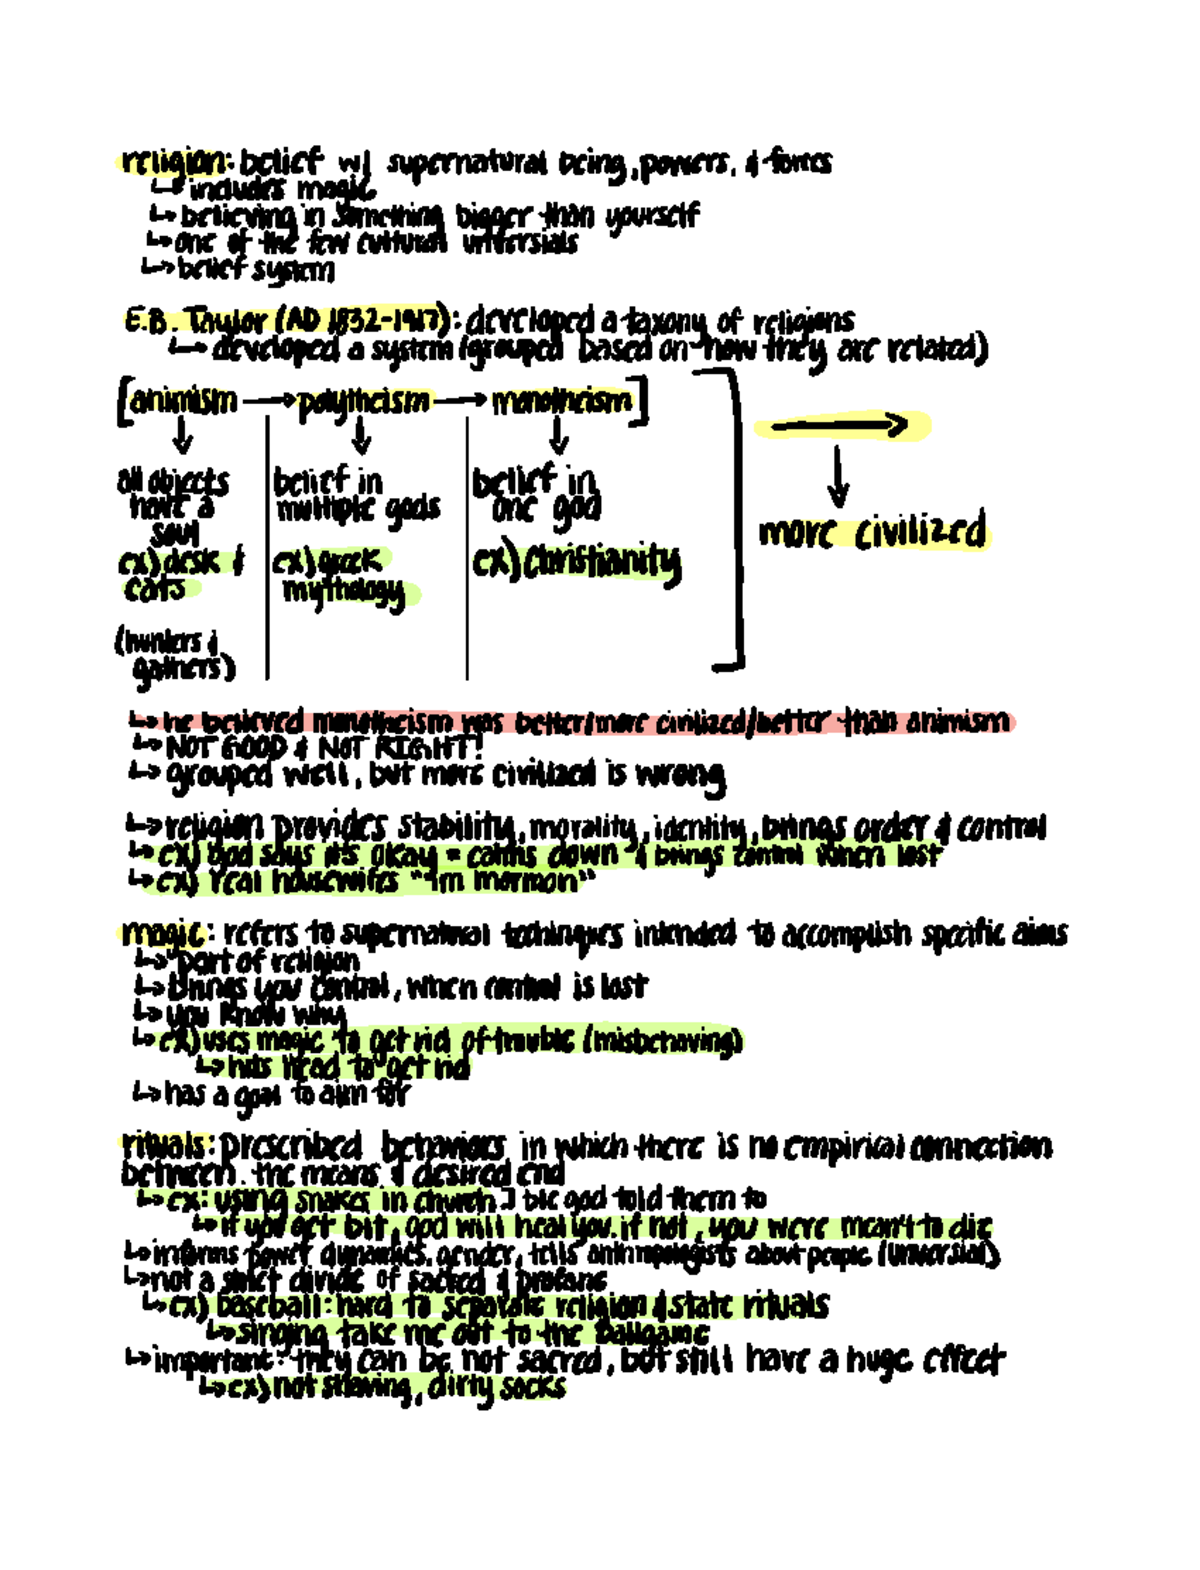 religion: belief w/ supernatural being, powers, & forces
↳ includes magic
↳ believing in something bigger than yourself
↳ one of the few cultural
↳ belief system
E.B. Taylor (AD 1832-1917): developed a taxony of religions
↳ developed a system (grouped based on how they are related)
[animism → polytheism → monotheism]
all objects have a soul
ex) desk & cats
(hunters & gathers)
belief in multiple gods
ex) greek mythology
belief in one god
ex) christianity
more civilized
↳ he believed monotheism was better/more civilized/better than animism
↳ NOT GOOD & NOT RIGHT!
↳ grouped well, but more civilized is wrong
↳ religion provides stability, morality, identity, brings order & control
↳ ex) god says it's okay = calms down & brings control when lost
↳ ex) real housewifes "im mormon"
magic: refers to supernatural techniques intended to accomplish specific aims
↳ part of religion
↳ brings you control, when control is lost
↳ you know why
↳ ex) uses magic to get rid of trouble (misbehaving)
↳ to get rid
↳ has a goal to aim for
rituals: prescribed behaviors in which there is no empirical connection
between the means & desired end
↳ ex: using snakes in church] b/c god told them to
↳ if you get bit, god will heal you. if not, you were mean't to die
↳ informs power dynamics, gender, tells anthropologists about people (universal)
↳ not a strict divide of sacred & profane
↳ ex) baseball: hard to separate religion & state rituals
↳ singing take me out to the ballgame
↳ important: they can be not sacred, but still have a huge effect
↳ ex) not shaving, dirty socks